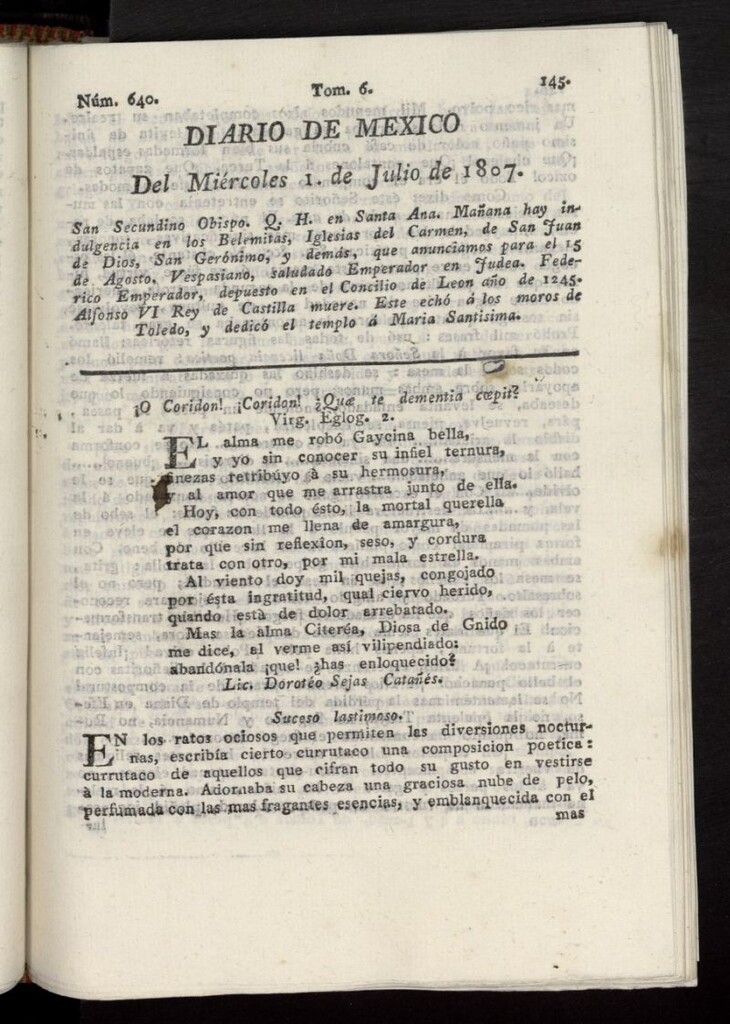 Núm. 640. Tom. 6. 145.
DIARIO DE MEXICO
Del Miércoles 1. de Julio de 1807.
San Secundino Obispo. Q. H. en Santa Ana. Mañana hay in-
dulgencia en los Belemitas, Iglesias del Carmen, de San Juan
de Dios, San Gerónimo, y demás, que anunciamos para el 15
de Agosto. Vespasiano, saludado Emperador en Judea. Fede-
rico Emperador, depuesto en el Concilio de Leon año de 1245.
Alfonso VI Rey de Castilla muere. Este echó á los moros de
Toledo, y dedicó el templo á Maria Santisima.
¡O Coridon! ¡Coridon! ¿Quæ te dementia cœpit?
Virg. Eglog. 2.
EL alma me robó Gaycina bella,
y yo sin conocer su infiel ternura,
finezas retribúyo à su hermosura,
y al amor que me arrastra junto de ella.
Hoy, con todo ésto, la mortal querella
el corazon me llena de amargura,
por que sin reflexîon, seso, y cordura
trata con otro, por mi mala estrella.
Al viento doy mil quejas, congojado
por ésta ingratitud, qual ciervo herido,
quando està de dolor arrebatado.
Mas la alma Citeréa, Diosa de Gnido
me dice, al verme así vilipendiado:
abandónala ¡que! ¿has enloquecido?
Lic. Dorotéo Sejas Catañés.
Suceso lastimoso.
EN los ratos ociosos que permiten las diversiones noctur-
nas, escribía cierto currutaco una composicion poetica:
currutaco de aquellos que cifran todo su gusto en vestirse
à la moderna. Adornaba su cabeza una graciosa nube de pelo,
perfumada con las mas fragantes esencias, y emblanquecida con el
mas